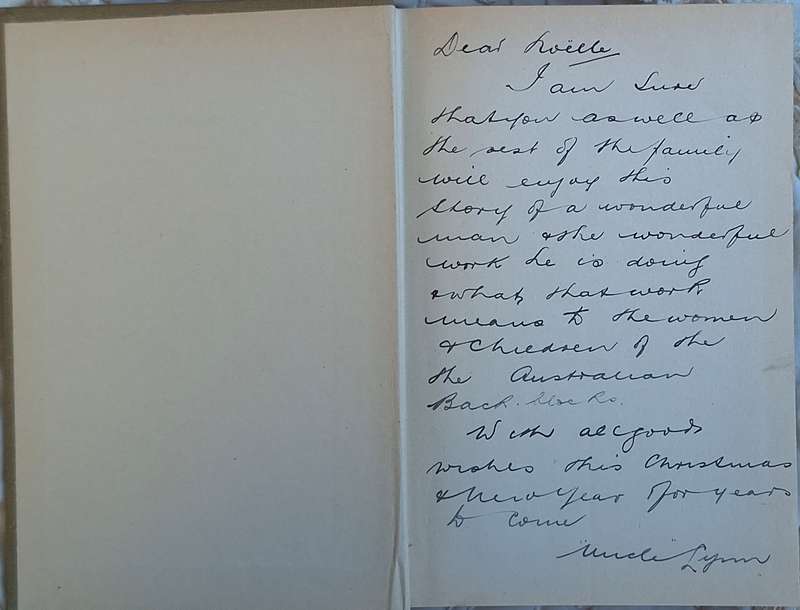 Dear Noëlle
I am sure
that you as well as
the rest of the family
will enjoy this
story of a wonderful
man & the wonderful
work he is doing
& what that work
means to the women
& children of the
the Australian
Back-blocks.
With all good
wishes this Christmas
& New Year & for years
to come
"Uncle" Lynn